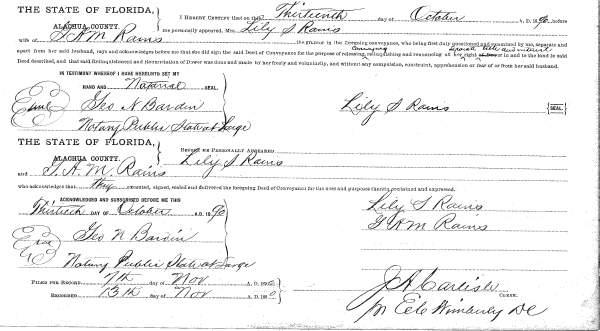 THE STATE OF FLORIDA,
ALACHUA COUNTY.
I HEREBY CERTIFY that on this Thirteenth day of October A. D. 1890, before
me personally appeared Mrs. Lily S Rains
wife of T. A. M. Rains the grantor in the foregoing conveyance, who being first duly questioned and examined by me, separate and
apart from her said husband, says and acknowledges before me that she did sign the said Deed of Conveyance for the purpose of releasing, conveying relinquishing and renouncing all her separate estate and interest in and to the land in said
Deed described, and that said Relinquishment and Renunciation of Dower was done and made by her freely and voluntarily, and without any compulsion, constraint, apprehension or fear of or from her said husband.
IN TESTIMONY WHEREOF I HAVE HEREUNTO SET MY
HAND AND Notarial SEAL.
Geo N Bardin
Lily S Rains SEAL
Notary Public State at Large
THE STATE OF FLORIDA,
ALACHUA COUNTY.
BEFORE ME PERSONALLY APPEARED
Lily S Rains
and T. A. M. Rains
who acknowledges that they executed, signed, sealed and delivered the foregoing Deed of Conveyance for the uses and purposes therein contained and expressed.
ACKNOWLEDGED AND SUBSCRIBED BEFORE ME THIS
Thirteenth DAY OF October A. D. 1890
Lily S Rains
T A M Rains
Geo N Bardin
Notary Public State at Large
FILED FOR RECORD 7th day of Nov A. D. 1890
RECORDED 13th day of Nov A. D. 1890
J A Carlisle
CLERK.
pr Wimberly DC